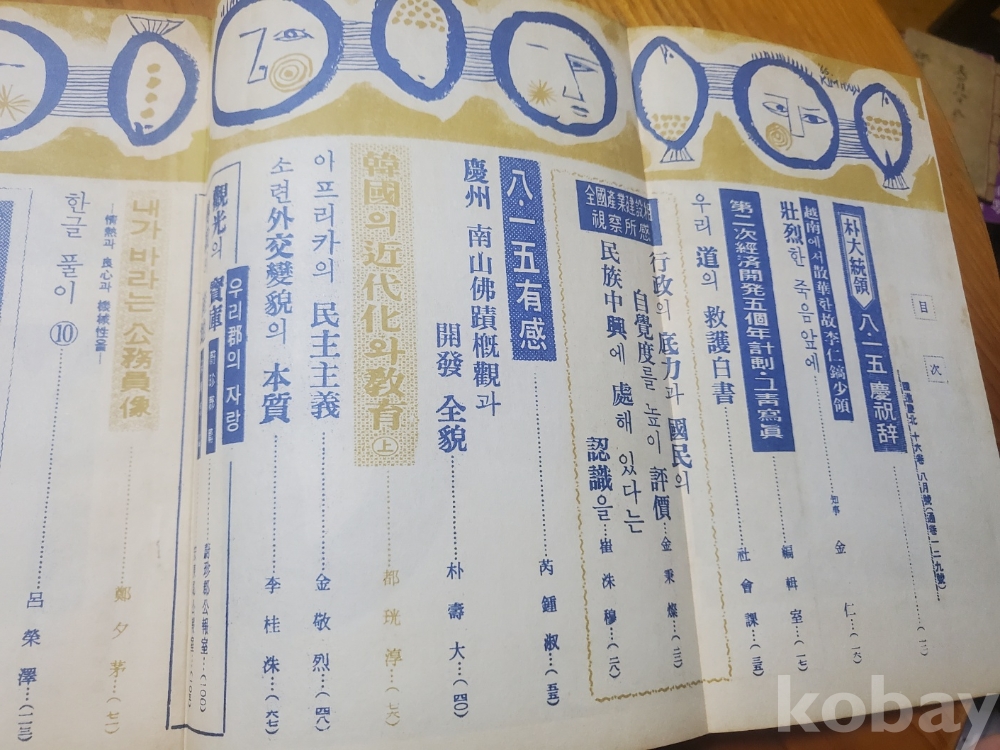 目次
慶北 十六卷 八月號(通卷一二九號)
朴大統領 八·一五 慶祝辞……(一)
越南에서 散華한 故 李仁鎬少領
壯烈한 죽음앞에……知事 金 仁…(一六)
第二次經済開發五個年計劃·그靑寫眞……編輯室…(一七)
우리 道의 救護白書……社會課…(三五)
全國産業建設相
視察所感
行政의 底力과 國民의
自覺度를 높이 評價…金秉燦…(二三)
民族中興에 處해 있다는
認識을…崔洙穆…(二六)
八·一五有感……芮鍾淑…(五五)
慶州 南山佛蹟槪觀과
開發 全貌……朴壽大…(四〇)
韓國의 近代化와 敎育 ㊤……都珖淳…(七六)
아프리카의 民主主義……金敬烈…(四八)
소련外交變貌의 本質……李桂洙…(六七)
우리郡의 자랑
觀光의 寶庫
公報室…(100)
내가 바라는 公務員像……鄭夕茅…(七一)
─情熱과 良心과 積極性을─
한글 풀이 ⑩……呂榮澤…(一一三)
kobay